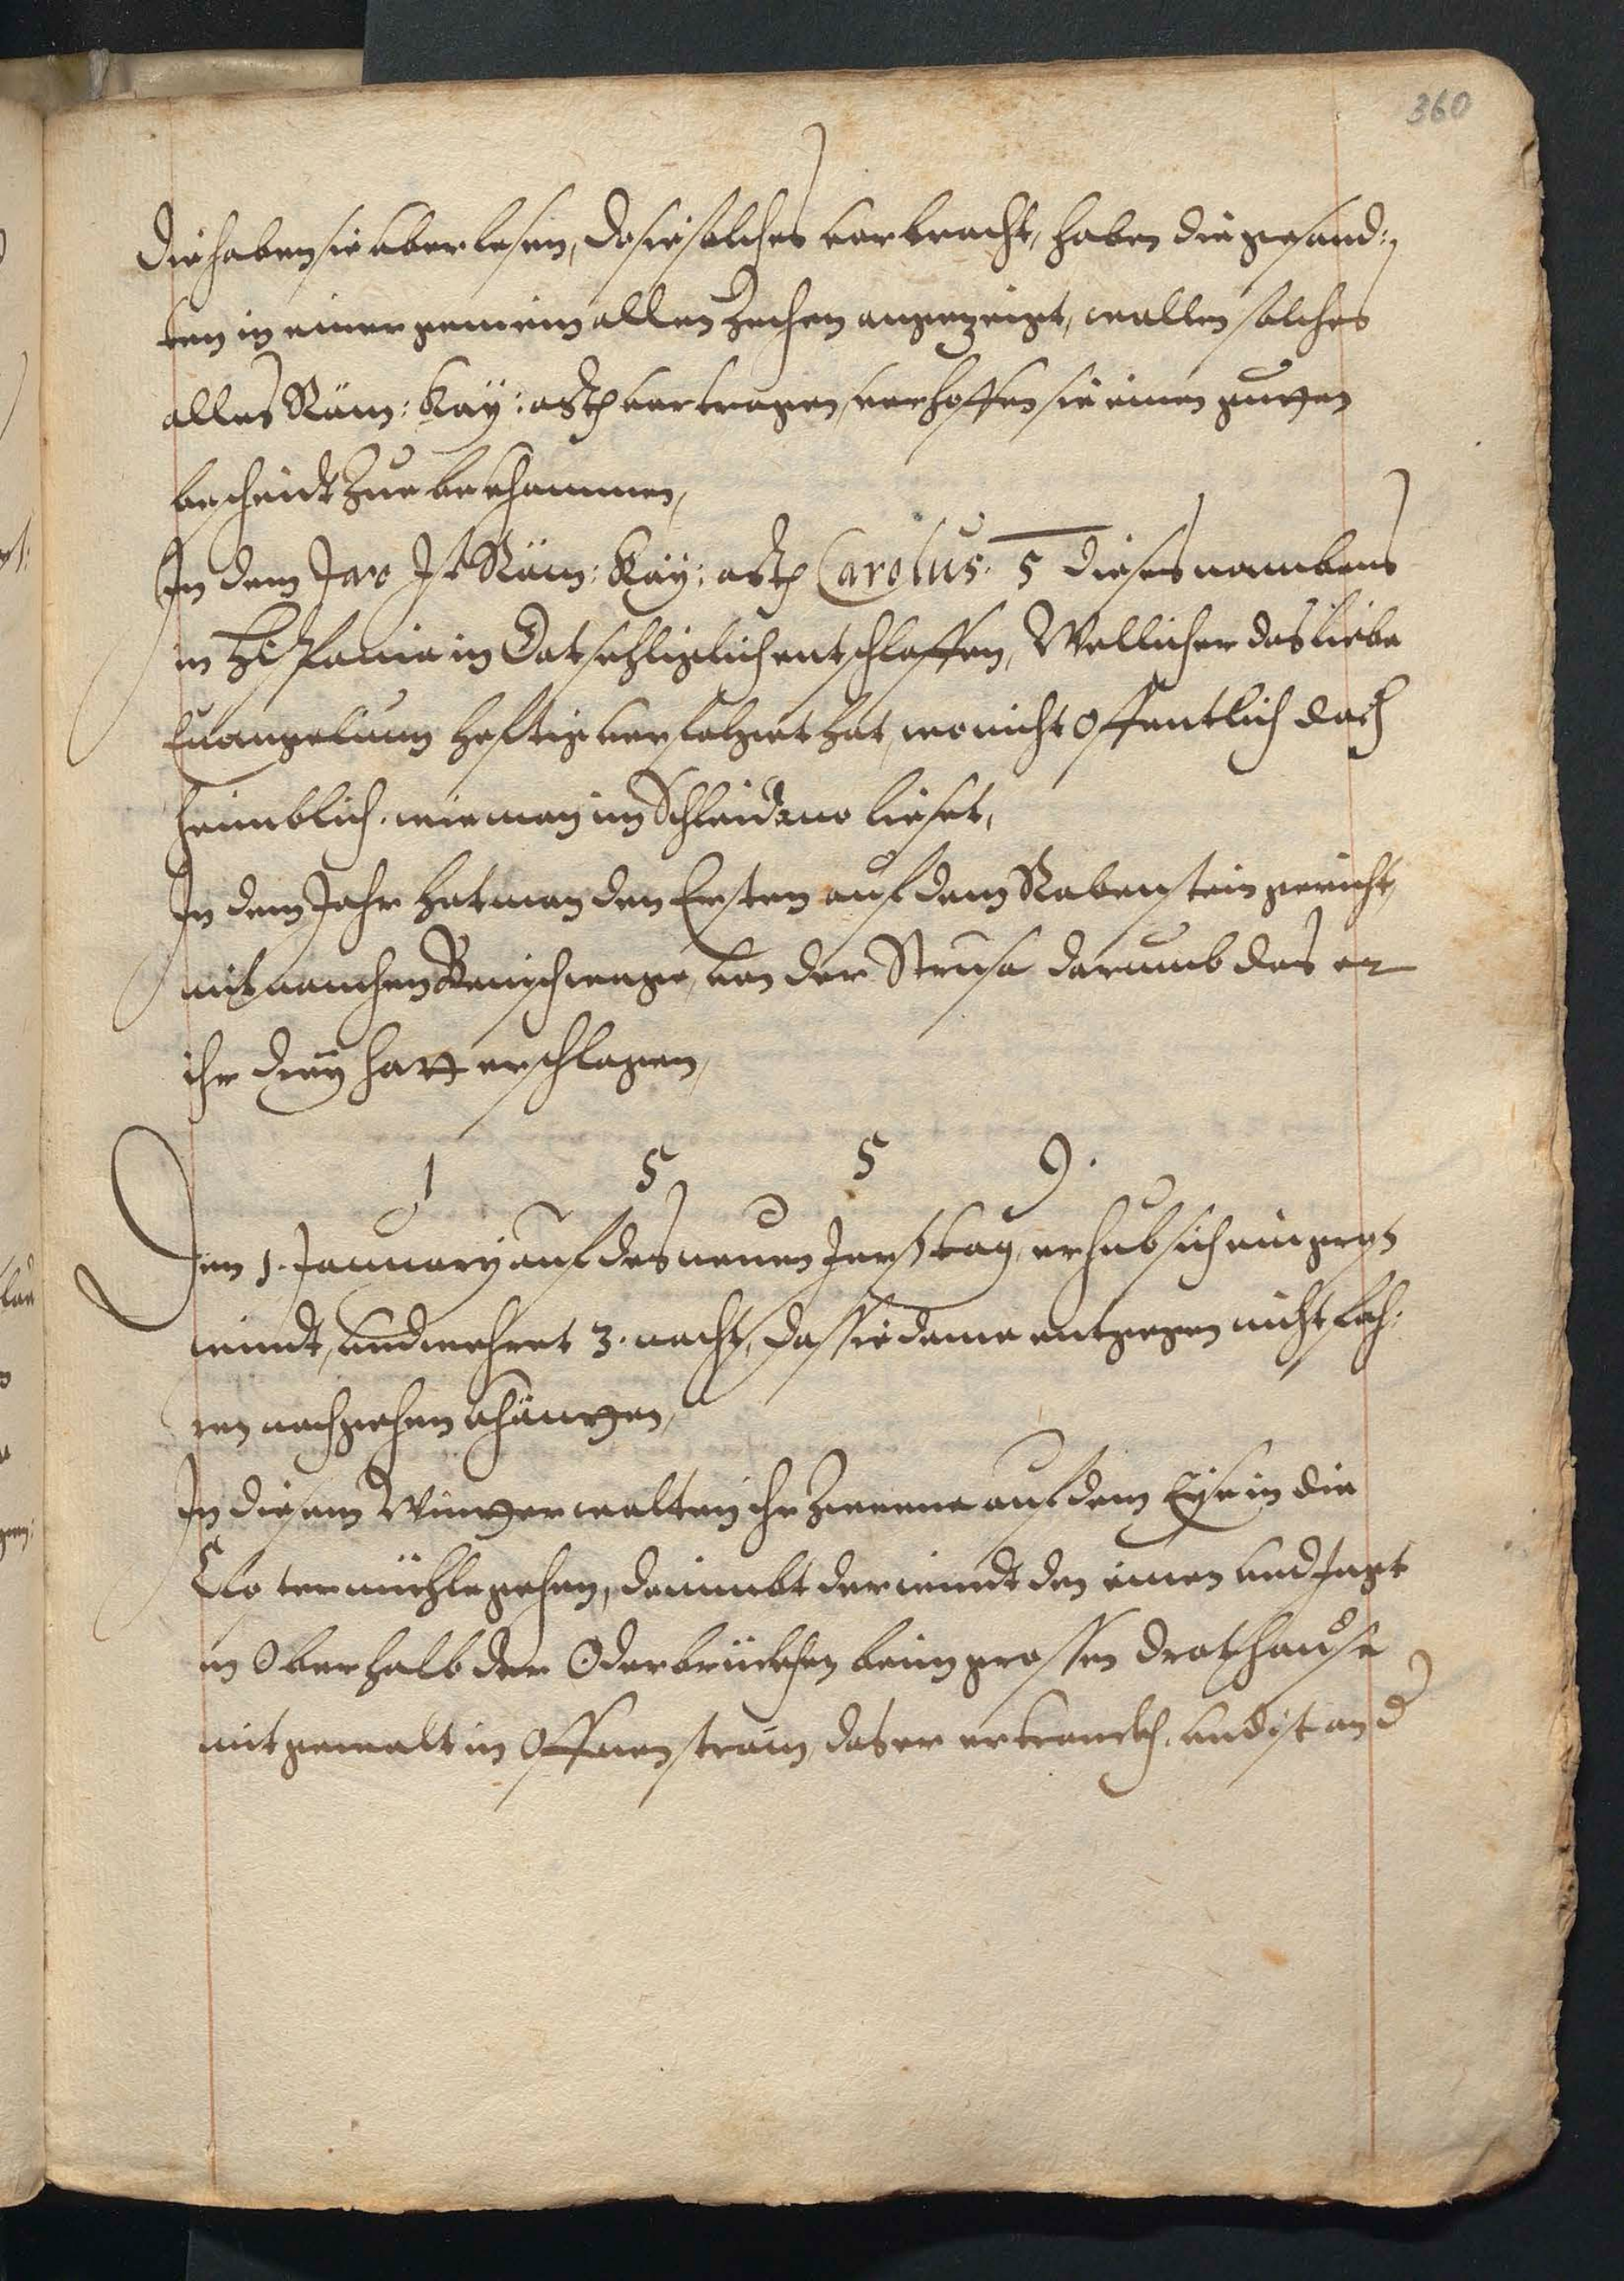 360
Die haben sie uberlesen, do sie solches vorbracht, haben die gesand:
ten in einer gemein allen Zechen angezeigt, wollen solches
alles Röm: Kay: Mtt vortragen, verhoffen sie einen gutten
bescheidt Zue bekhommen,
In dem Jaro Ist Röm: Kay: Mtt Carolus. 5 dieses nambens
in Hispania in Got sehliglich entschlaffen, Wellicher das liebe
Euangelium hefftig verfolgett hat, wo nicht offentlich doch
heimblich. wie man im Schleidano lieset,
In dem Jahr hat man den Ersten auf dem Rabenstein gericht,
mit namhen von der Strusa darumb das er
ihr drey hatt erschlagen,
1 5 5 9.
Den 1. January auf des neuen Jarß tag, erhub sich ein gros
windt, und wehret 3. nacht, das sie deme entgegen nicht fah:
ren noch gehen khünnen,
In diesem Winter wolten ihr Zweene auf dem Eyse in die
Clo ter mühle gehen, do nimbt der windt den einen und Jagt
in Oberhalb der Oderbrückhen beim grossen Drathause
mit gewalt in offnen strom, das er ertranckh. und ist and